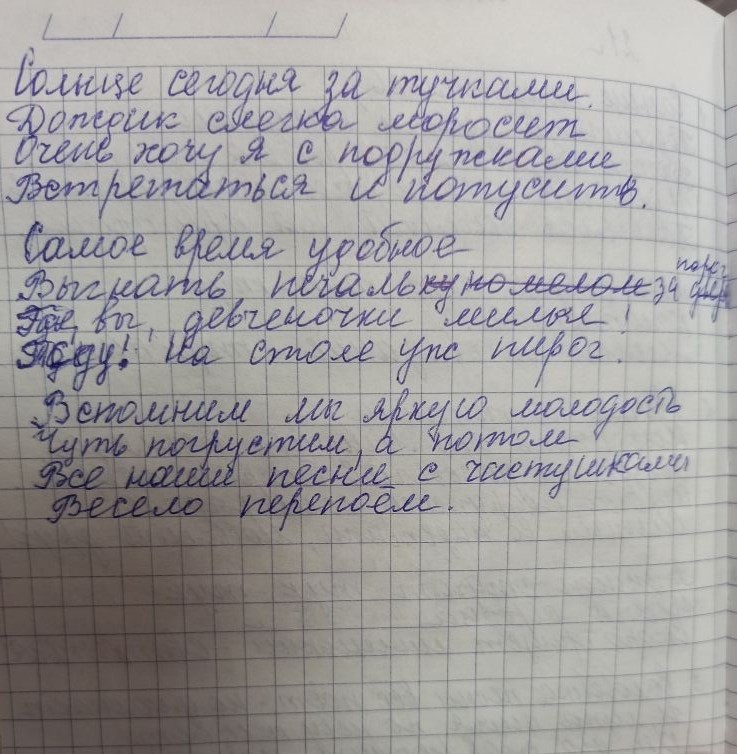 Солнце сегодня за тучками.
Дождик слегка моросит
Очень хочу я с подружками
Встретиться и потусить.
Самое время удобное
порог
Выгнать печаль за
Где, вы, девченочки милые!
Жду! На столе уже пирог.
Вспомним мы яркую молодость
Чуть погрустим, а потом
Все наши песни с частушками
Весело перепоём.